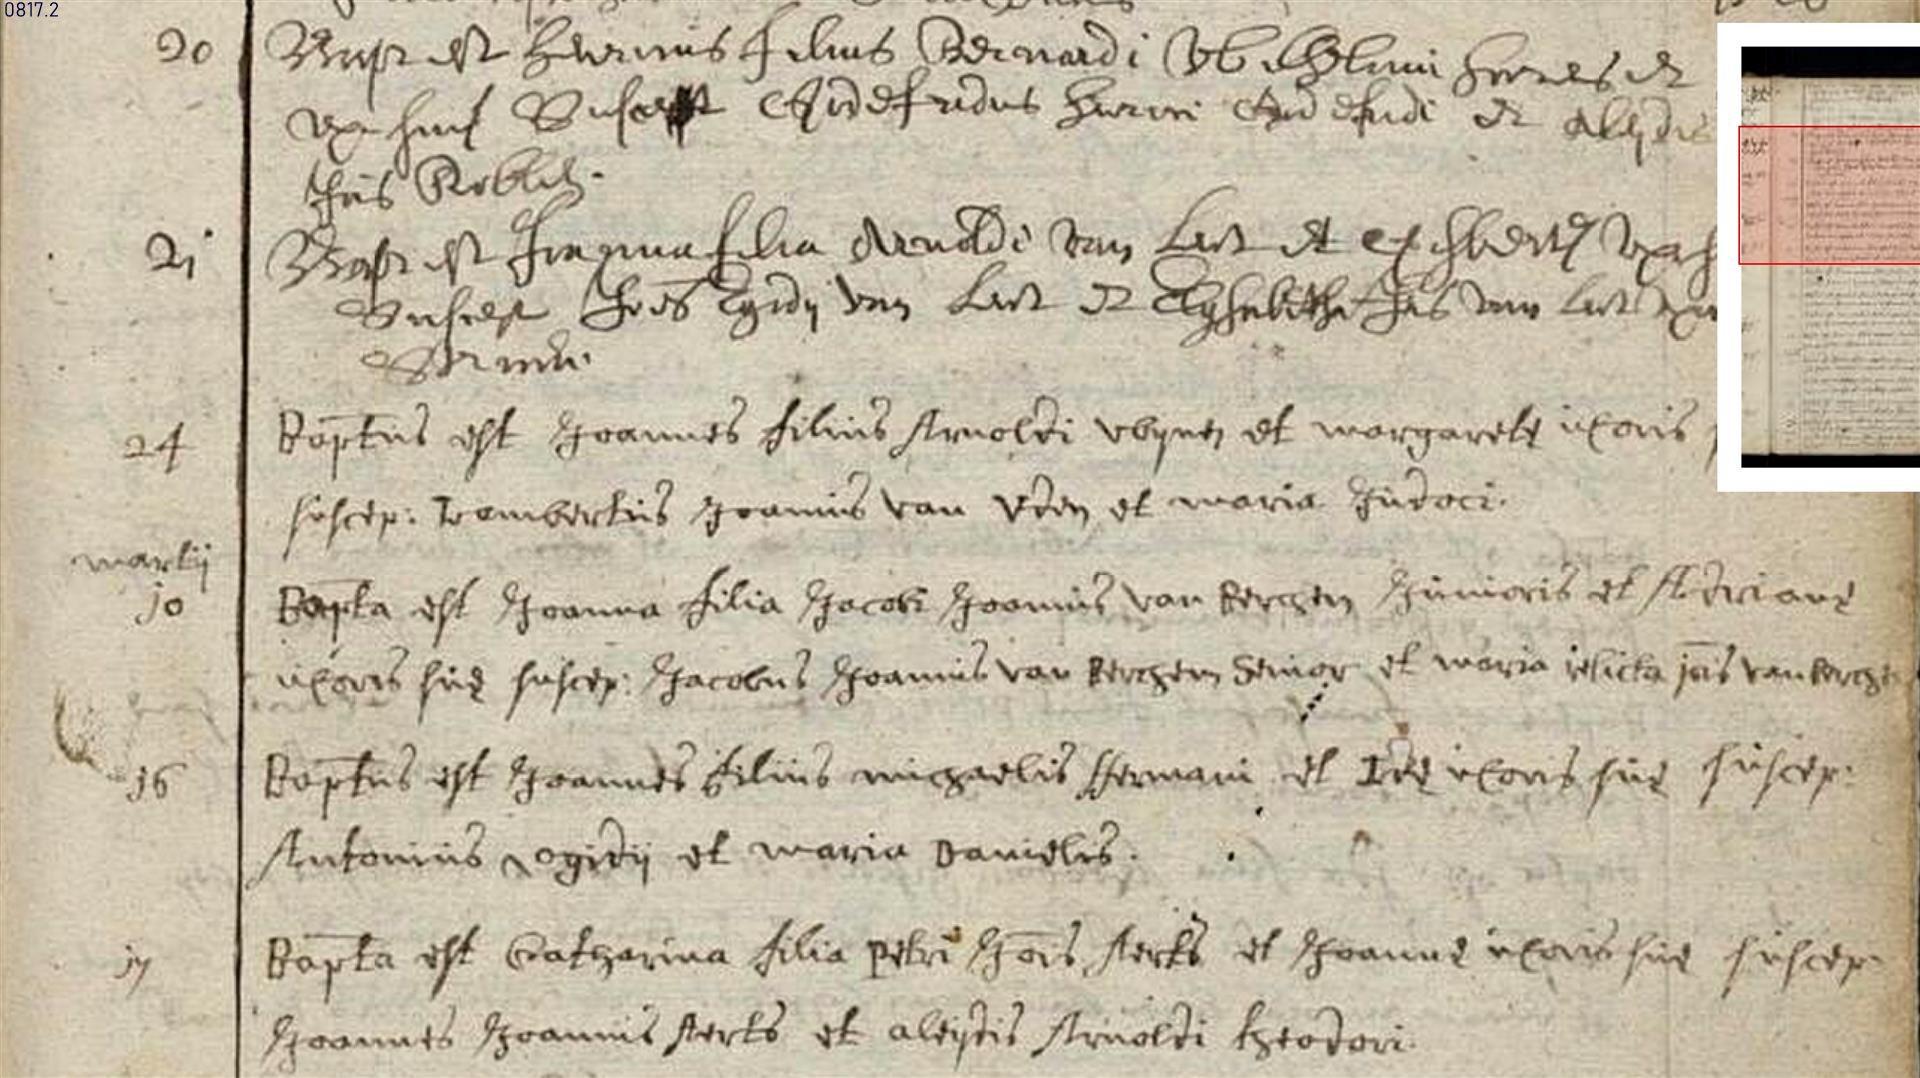 0817.2
20 Bapt est Henricus filius Bernardi et
ux suis Suscep Godefridus Henrici Godefridi et Aleydis
Jois
21 Bapt est filia Arnoldi van Lut et
Suscep Joes Egidij van Lut et Elysabetha van Lut
24 Baptus est Joannes filius Arnoldi et margarete uxoris
suscep: Lambertus Joannis van Uden et maria Judoci.
martij
10 Bapta est Joanna filia Jacobi Joannis van Berchem Junioris et Adriane
uxoris sue suscep: Jacobus Joannis van Berchem Senior et maria relicta jois van
16 Baptus est Joannes filius michaelis Hermani et Ide uxoris sue suscep:
Antonius Egidij et maria Danielis.
17 Bapta est Catharina filia Petri Jois Aerts et Joanne uxoris sue suscep
Joannes Joannis Aerts et aleijdis Arnoldi theodori.